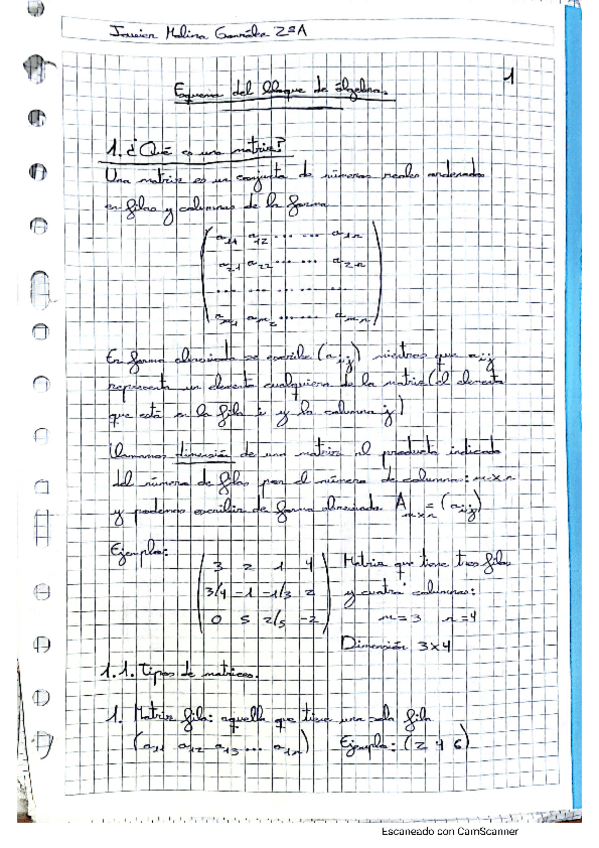 Javier Molina González 2ºA
1
Esquema del bloque de álgebra.
1. ¿Qué es una matriz?
Una matriz es un conjunto de números reales ordenados
en filas y columnas de la forma
a11 a12 ... ... a1n
a21 a22 ... ... a2n
... ... ... ... ...
am1 am2 ... ... amn
En forma abreviada se escribe (aij) mientras que aij
representa un elemento cualquiera de la matriz (el elemento
que está en la fila i y la columna j)
Llamamos dimensión de una matriz al producto indicado
del número de filas por el número de columnas: m×n
y podemos escribir de forma abreviada Am×n = (aij)
Ejemplo:
3 2 1 4
3/4 -1 -1/3 2
0 5 2/5 -2
Matriz que tiene tres filas
y cuatro columnas:
m=3 n=4
Dimensión 3×4
1.1. Tipos de matrices.
1. Matriz fila: aquella que tiene una sola fila
(a11 a12 a13 ... a1n) Ejemplo: (2 4 6)
Escaneado con CamScanner